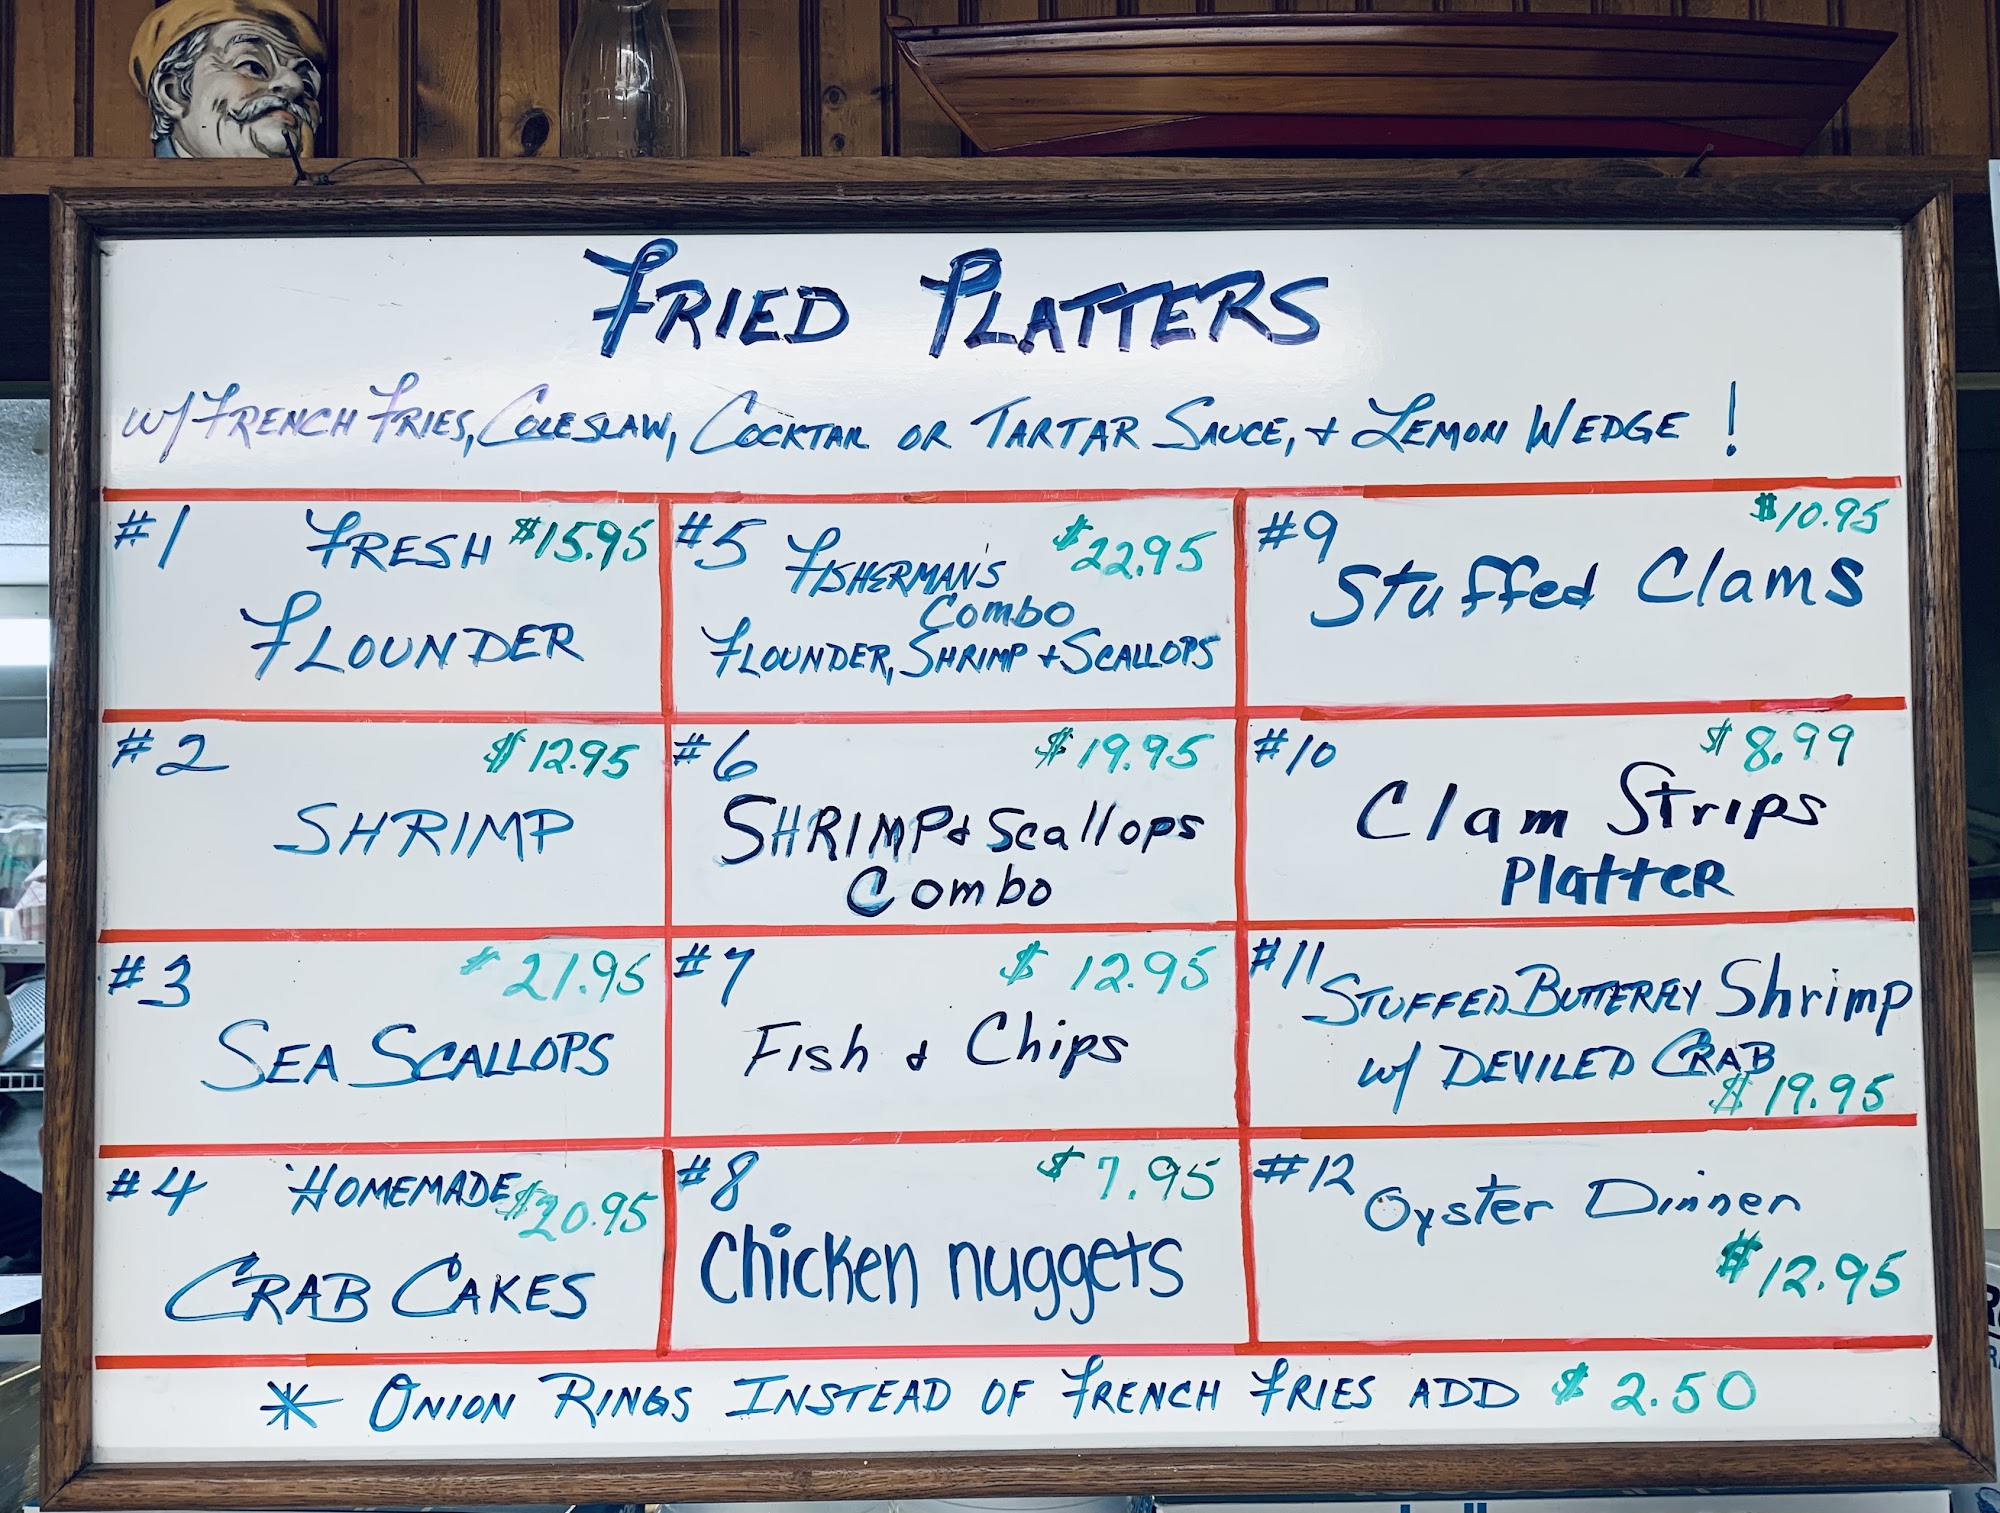 FRIED PLATTERS
W/ FRENCH FRIES, COLESLAW, COCKTAIL OR TARTAR SAUCE, + LEMON WEDGE !
#1 FRESH $15.95
FLOUNDER
#2 $12.95
SHRIMP
#3 $21.95
SEA SCALLOPS
#4 HOMEMADE $20.95
CRAB CAKES
#5 FISHERMAN'S $22.95
Combo
FLOUNDER, SHRIMP + SCALLOPS
#6 $19.95
SHRIMP & Scallops
Combo
#7 $12.95
Fish & Chips
#8 $7.95
Chicken nuggets
#9 $10.95
Stuffed Clams
#10 $8.99
Clam Strips
Platter
#11 STUFFED BUTTERFLY Shrimp
W/ DEVILED CRAB
$19.95
#12 Oyster Dinner
$12.95
* ONION RINGS INSTEAD OF FRENCH FRIES ADD $2.50